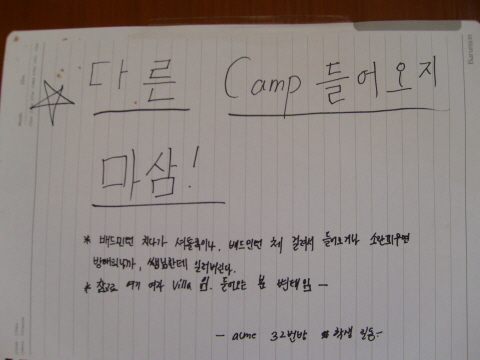 다른 Camp 들어오지
마삼!
* 배드민턴 치다가 셔틀콕이나, 배드민턴 채 걸려서 들어오거나 소란피우면
방해되니까, 쌤님한테 일러버린다.
* 참고로 여기 여자 Villa 임. 들어오는 놈 변태임 ー
- acme 32번방 학생 일동 -